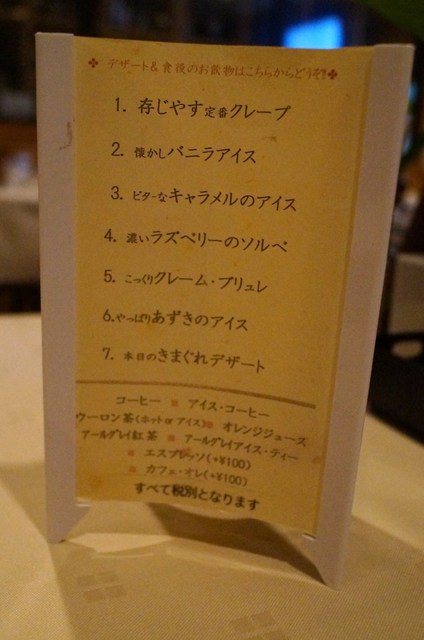 ❖ デザート&食後のお飲物はこちらからどうぞ!!❖
1. 存じやす定番クレープ
2. 懐かしバニラアイス
3. ビターなキャラメルのアイス
4. 濃いラズベリーのソルベ
5. こっくりクレーム・ブリュレ
6. やっぱりあずきのアイス
7. 本日のきまぐれデザート
コーヒー ■ アイス・コーヒー
ウーロン茶(ホット or アイス)■ オレンジジュース
アールグレイ紅茶 ■ アールグレイアイス・ティー
■ エスプレッソ(+¥100)
■ カフェ・オレ(+¥100)
すべて税別となります